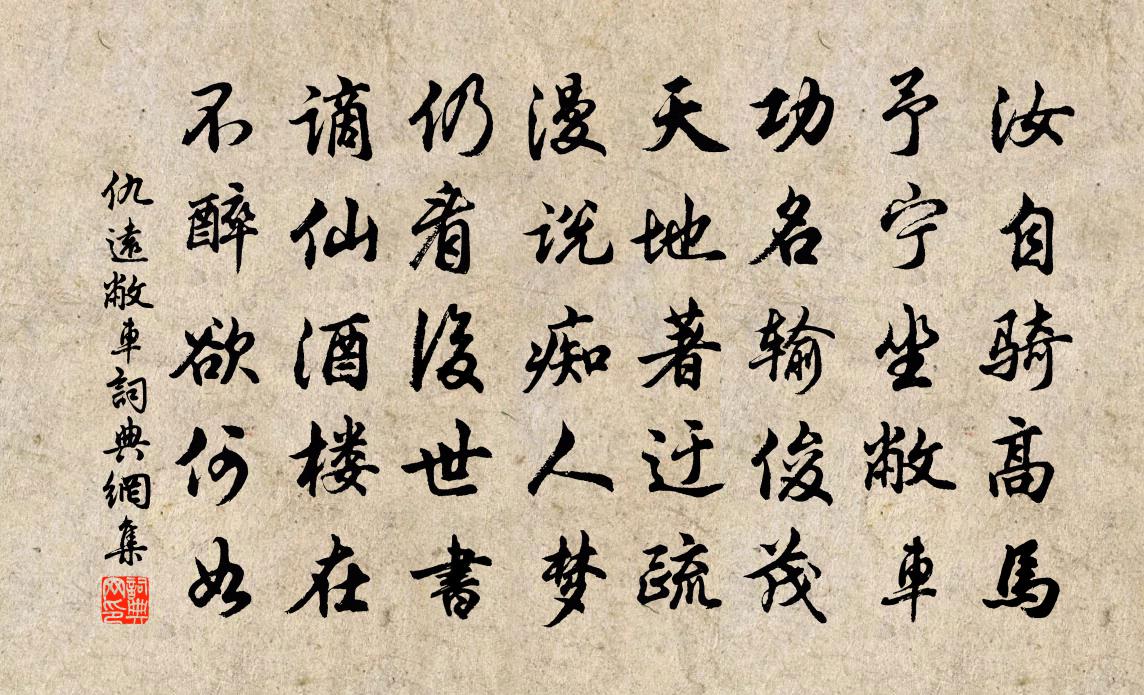 汝自骑高馬
予宁坐敝車
功名输俊茂
天地著迂疏
漫说痴人梦
仍看後世書
谪仙酒楼在
不醉欲何如
仇遠敝車詞典網集
詞典网印